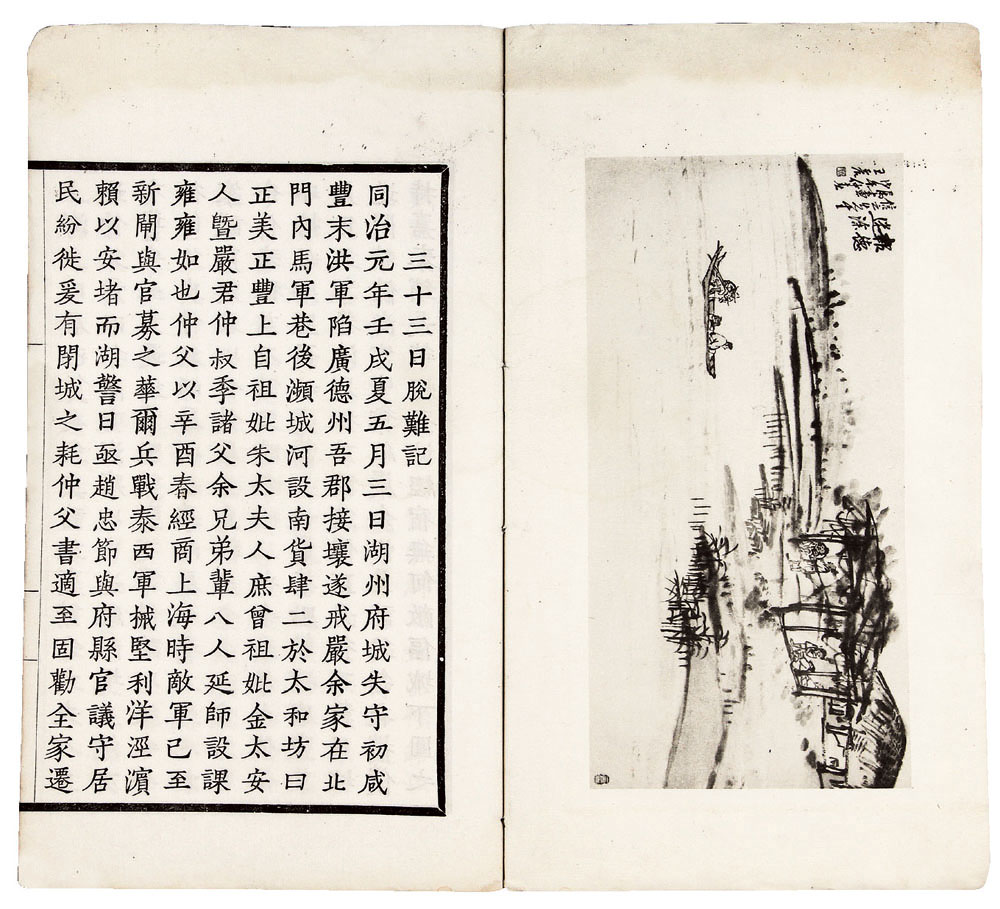 三十三日脫難記
同治元年壬戌夏五月三日湖州府城失守初咸
豐末洪軍陷廣德州吾郡接壤遂戒嚴余家在北
門內馬軍巷後瀕城河設南貨肆二於太和坊曰
正美正豐上自祖妣朱太夫人庶曾祖妣金太安
人暨嚴君仲叔季諸父余兄弟輩八人延師設課
雍雍如也仲父以辛酉春經商上海時敵軍已至
新閘與官募之華爾兵戰泰西軍械堅利洋涇濱
賴以安堵而湖警日亟趙忠節與府縣官議守居
民紛徙爰有閉城之耗仲父書適至固勸全家遷